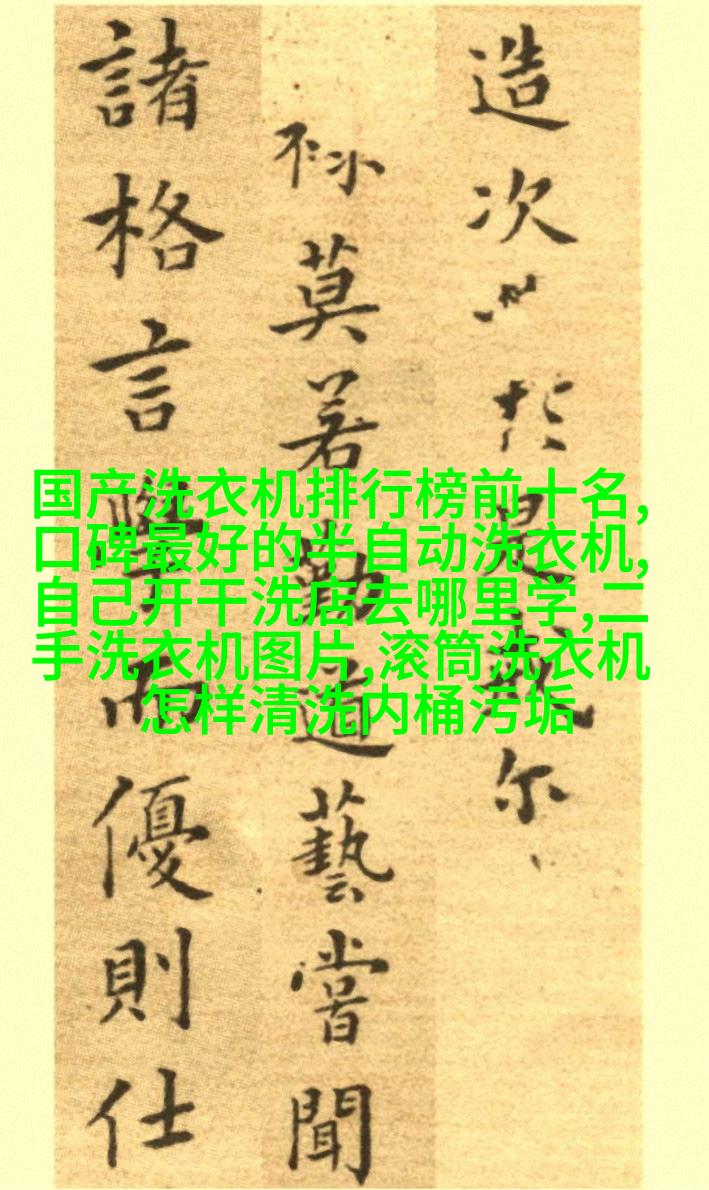 造次於是尔
莫若勤道藝嘗聞
諸格言學而優則仕
国产洗衣机排行榜前十名,
口碑最好的半自动洗衣机,
自己开干洗店去哪里学,二
手洗衣机图片,滚筒洗衣机
怎样清洗内桶污垢